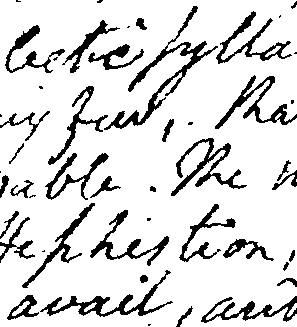 betic sylla
few, tha
able. The
Hephestion,
avail, and